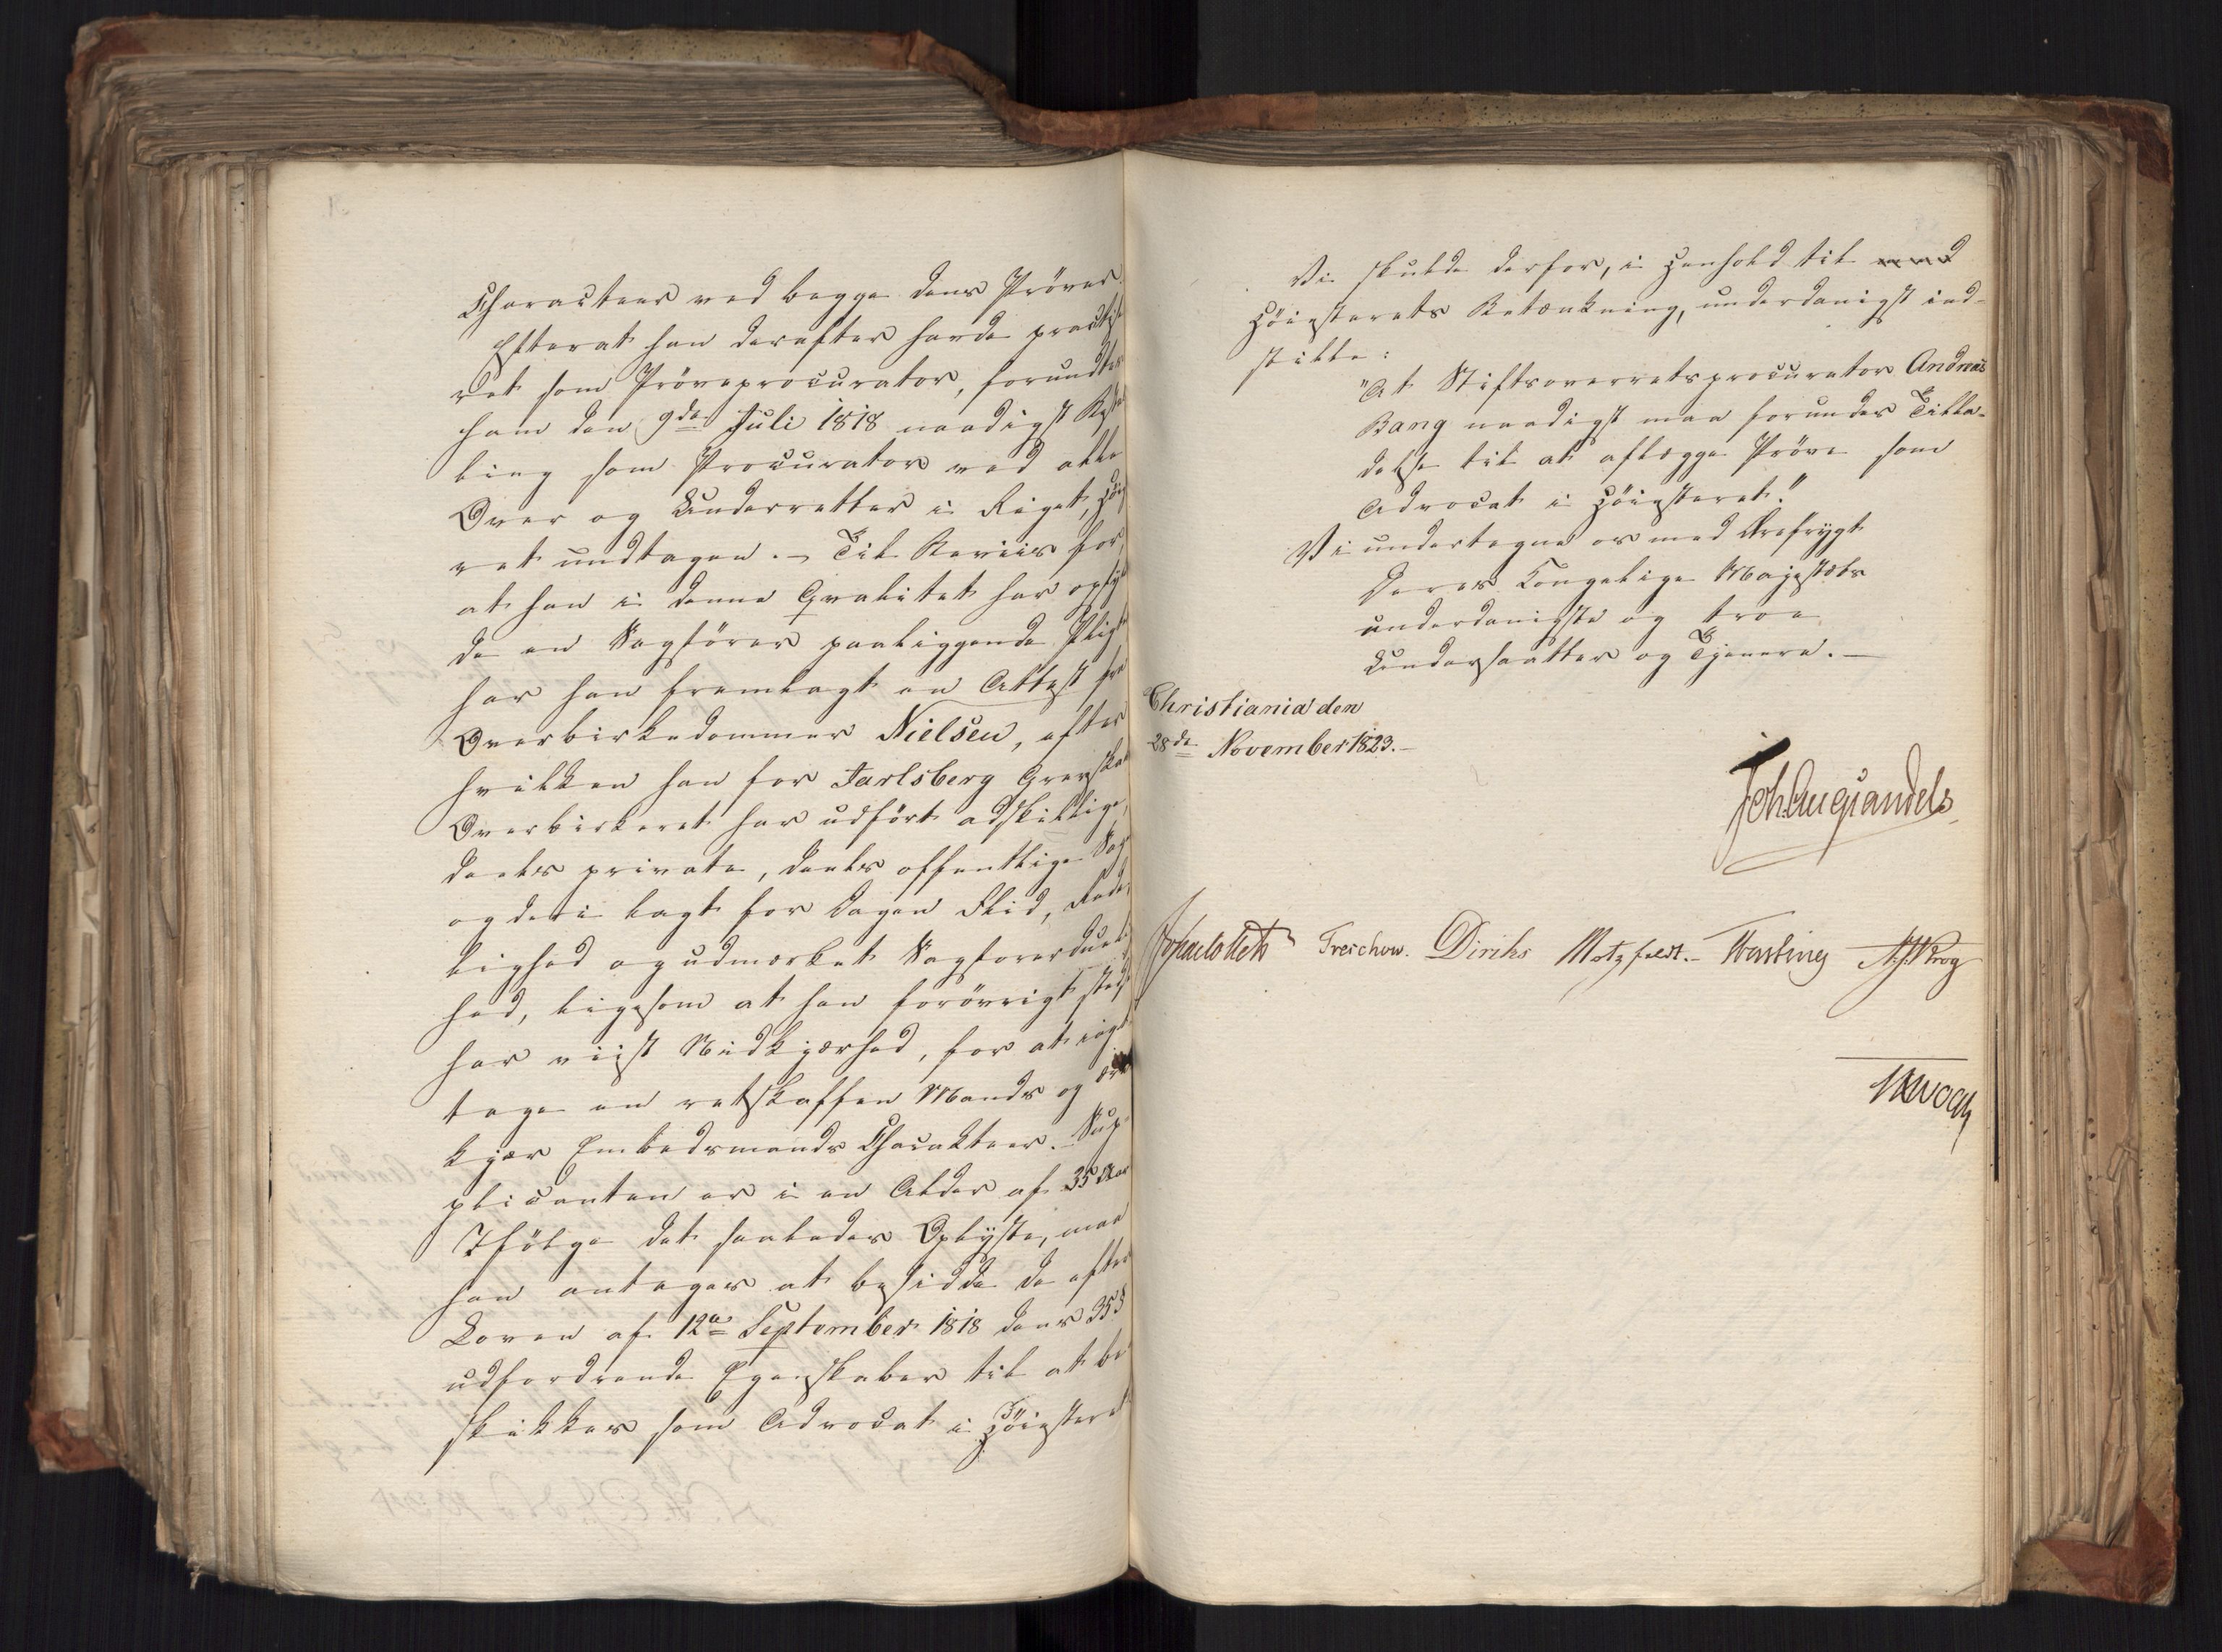 Characteer ved begge dens Prøver.
Efterat han derefter havde practise
ret som Prøveprocurator, forundtes
ham den 9de Juli 1818 naadigst Bestal
ling som Procurator ved alle
Over og Underretter i Riget, Høieste
ret undtagen. – Til Beviis for,
at han i denne Qvalitet har opfyl
de en Sagfører paaliggende Pligter
har han fremlagt en Attest fra
Overbirkedommer Nielsen, efter
hvilken han for Jarlsberg Grevskabs
Overbirkeret har udført adskillige,
deels private, deels offentlige Sager
og deri lagt for Dagen Flid, Rede-
lighed og udmærket Sagførerduelig
hed, ligesom at han forøvrigt stedse
har viist Nidkjærhed, for at iagt
tage en retskaffen Mands og
kjær Embedsmands Charakteer. – Sup-
plicanten er i en Alder af 35 Aar
Ifølge det saaledes Oplyste, maa
han antages at besidde de efter
Loven af 12te September 1818 dens 35§
udfordrende Egenskaber til at be-
skikkes som Advocat i Høiesteret
Vi skulde derfor, i Henhold til
Høiesterets Betænkning, underdanigst ind-
stille:
"At Stiftsoverretsprocurator Andreas
Bang naadigst maa forundes Tilla-
delse til at aflægge Prøve som
Advocat i Høiesteret."
Vi undertegne os med Ærefrygt
Deres Kongelige Majestæts
underdanigste og troe
Undersaatter og Tjenere. –
Christiania den
28de November 1823. –
Joh. Aug. Sandels
Jonas Collett Treschow. Diriks Motzfeldt. – Fasting N. J. Krog